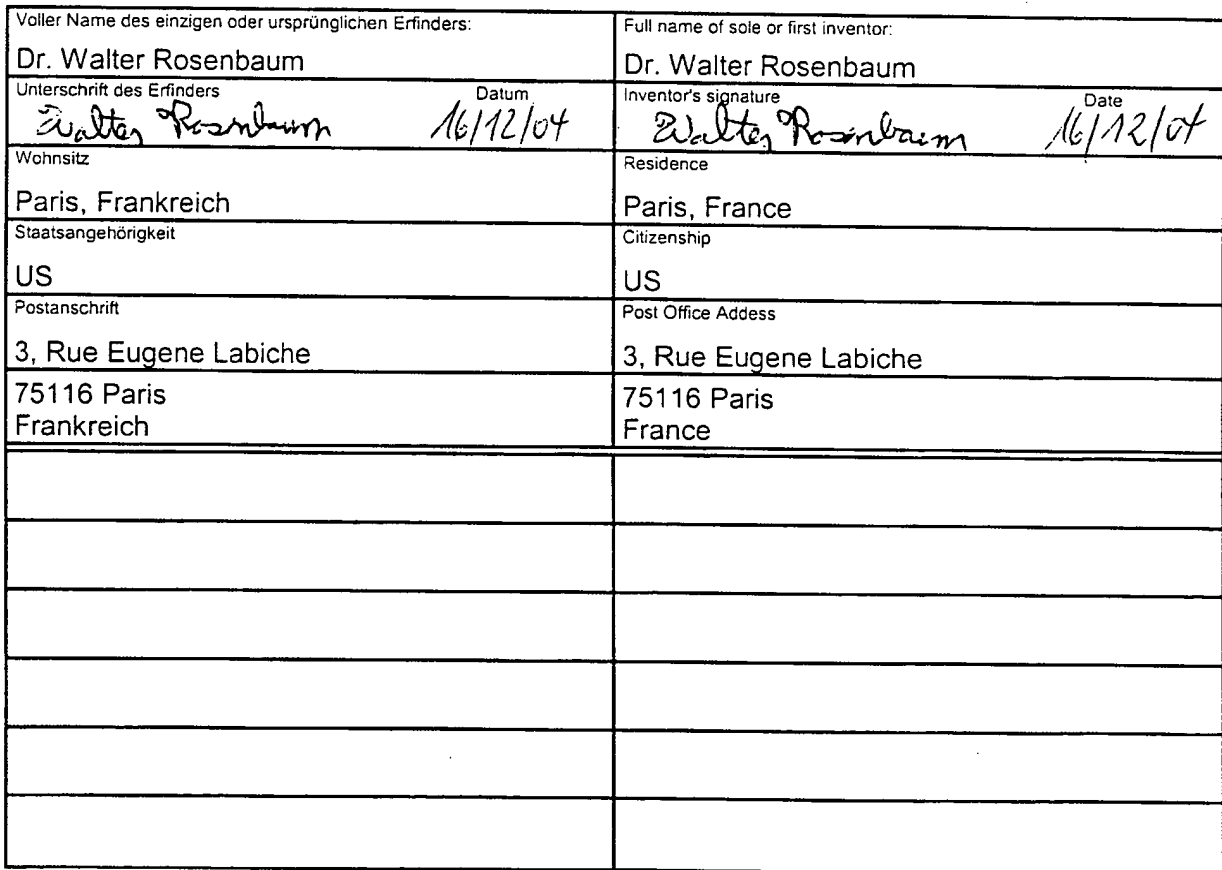 Voller Name des einzigen oder ursprünglichen Erfinders:
Dr. Walter Rosenbaum
Unterschrift des Erfinders
Datum
Walter Rosenbaum
16/12/04
Wohnsitz
Paris, Frankreich
Staatsangehörigkeit
US
Postanschrift
3, Rue Eugene Labiche
75116 Paris
Frankreich
Full name of sole or first inventor:
Dr. Walter Rosenbaum
Inventor's signature
Date
Walter Rosenbaum
16/12/04
Residence
Paris, France
Citizenship
US
Post Office Addess
3, Rue Eugene Labiche
75116 Paris
France